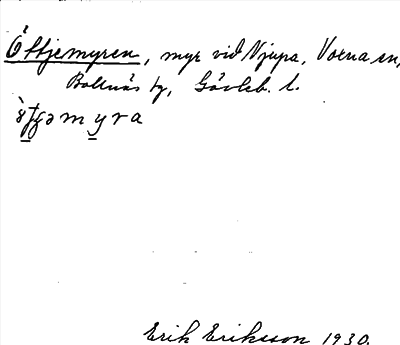 Öltjemyren, myr vid Njupa, Voxna sn,
Bollnäs tg, Gävleb. l.
myra
Erik Eriksson 1930.